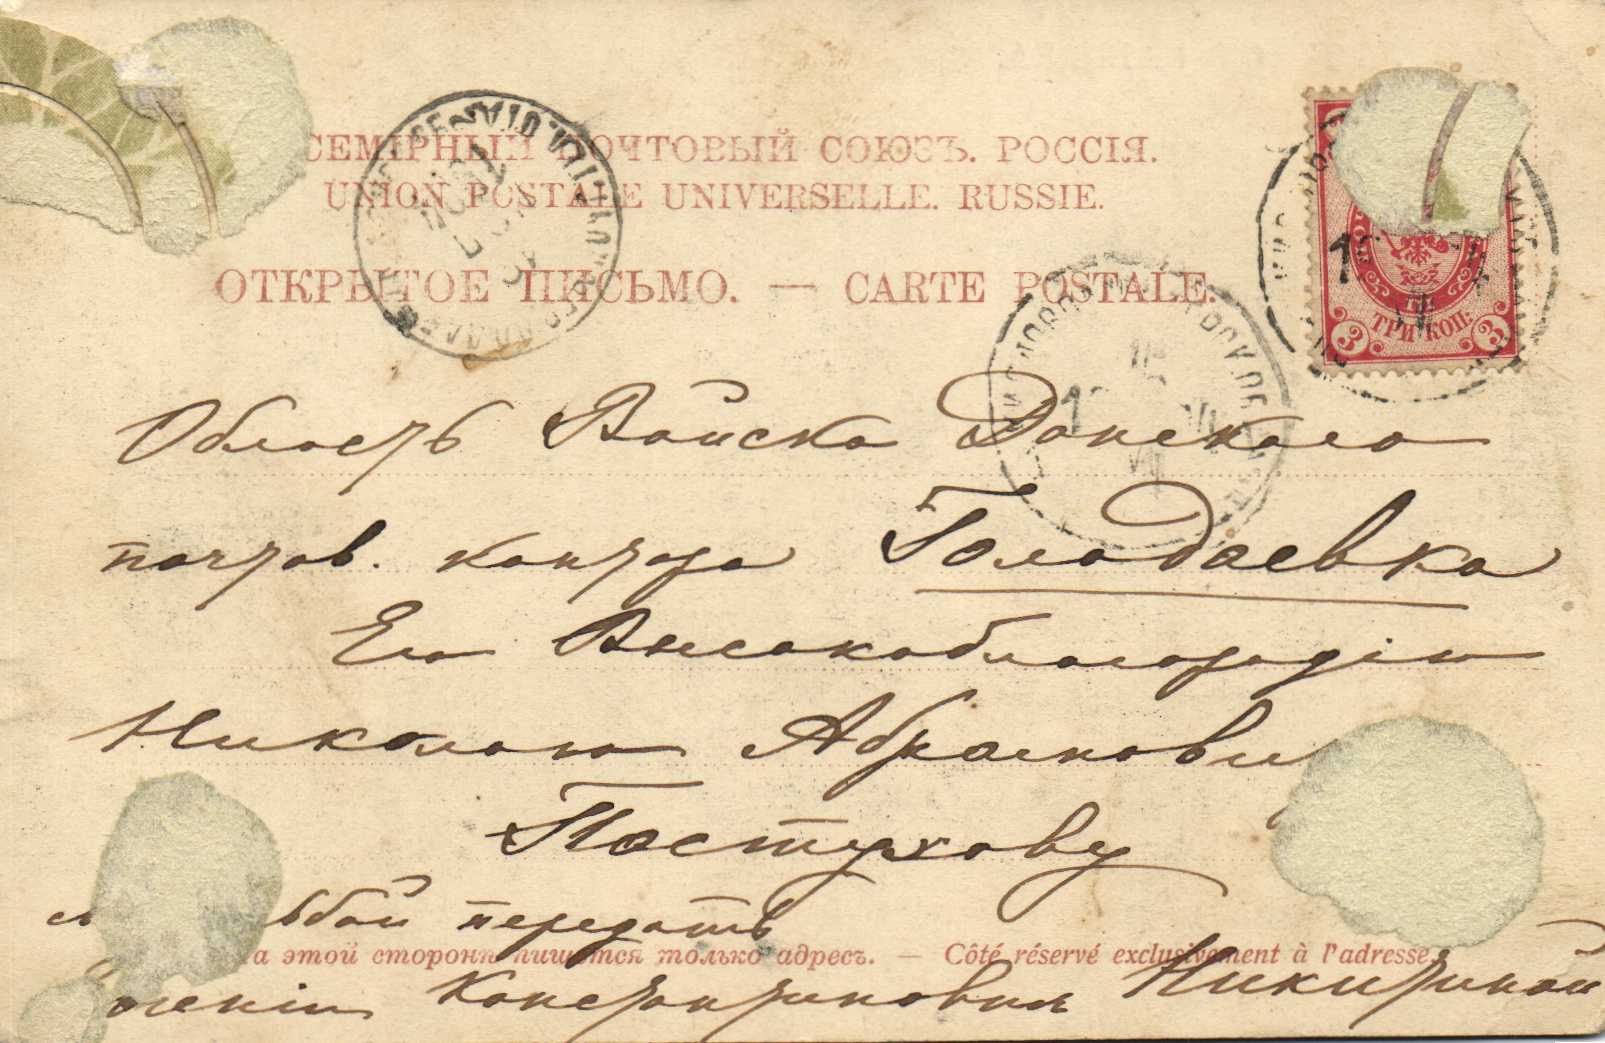 СЕМІРНЫЙ ПОЧТОВЫЙ СОЮЗЪ. РОССІЯ.
UNION POSTALE UNIVERSELLE. RUSSIE.
ОТКРЫТОЕ ПИСЬМО. — CARTE POSTALE.
ТРИ КОП.
3 3
Область Войска Донского
почтов. контора Голодаевка
Его Высокоблагородію
Николаю Абрамович
Пастухову
передать
а этой сторонѣ пишется только адресъ. — Côté réservé exclusivement à l'adresse.
Константиновнѣ Никитиной